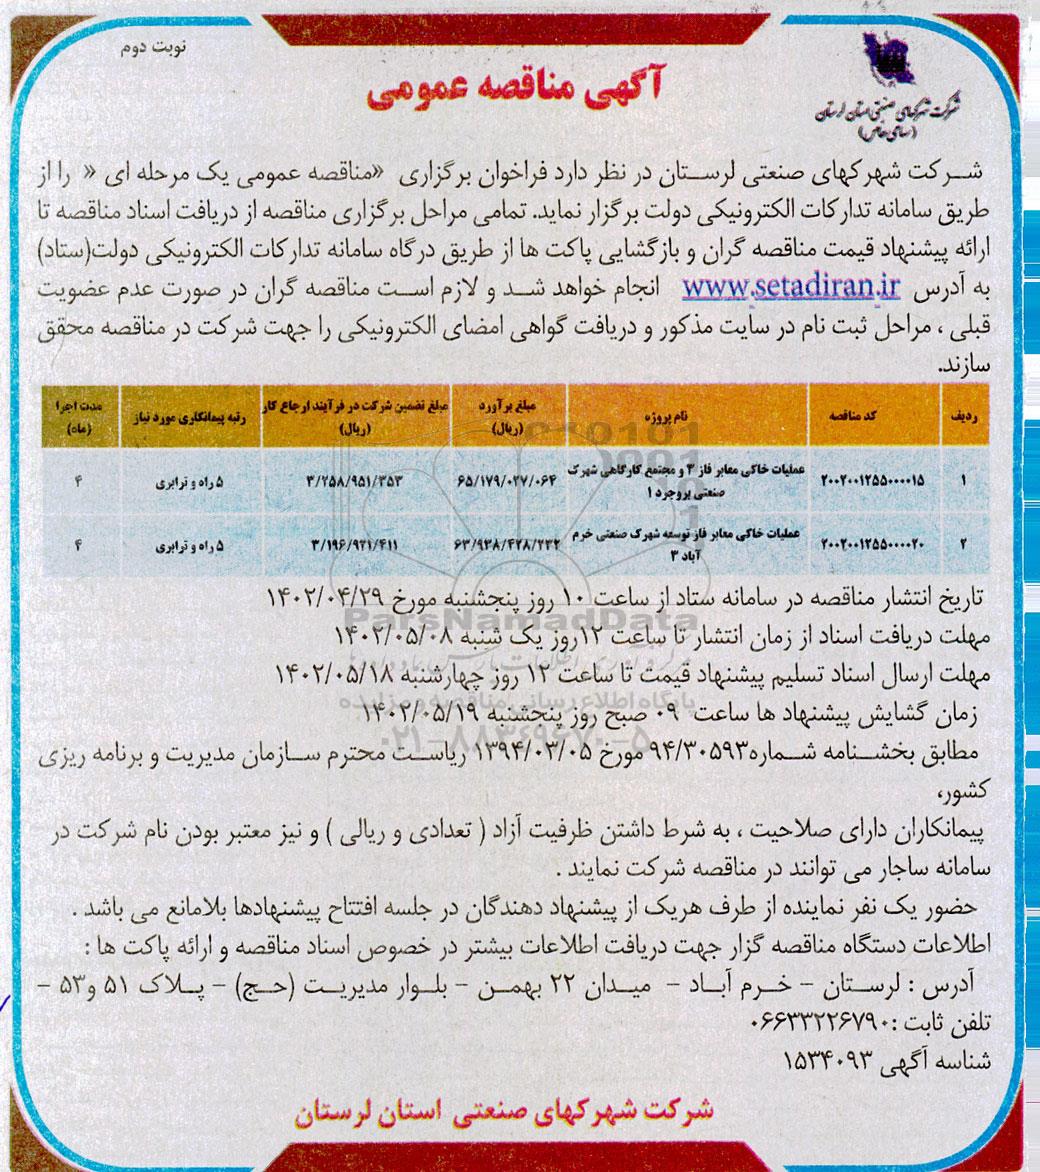 نوبت دوم
آگهی مناقصه عمومی
شرکت شهرکهای صنعتی استان لرستان
(سهامی خاص)
شرکت شهرکهای صنعتی لرستان در نظر دارد فراخوان برگزاری «مناقصه عمومی یک مرحله ای « را از
طریق سامانه تدارکات الکترونیکی دولت برگزار نماید. تمامی مراحل برگزاری مناقصه از دریافت اسناد مناقصه تا
ارائه پیشنهاد قیمت مناقصه گران و بازگشایی پاکت ها از طریق درگاه سامانه تدارکات الکترونیکی دولت(ستاد)
به آدرس www.setadiran.ir انجام خواهد شد و لازم است مناقصه گران در صورت عدم عضویت
قبلی ، مراحل ثبت نام در سایت مذکور و دریافت گواهی امضای الکترونیکی را جهت شرکت در مناقصه محقق
سازند.
ردیف کد مناقصه نام پروژه مبلغ برآورد (ریال) مبلغ تضمین شرکت در فرآیند ارجاع کار (ریال) رتبه پیمانکاری مورد نیاز مدت اجرا (ماه)
۱ ۲۰۰۲۰۰۱۲۵۵۰۰۰۰۱۵ عملیات خاکی معابر فاز ۳ و مجتمع کارگاهی شهرک صنعتی بروجرد ۱ ۶۵/۱۷۹/۰۲۷/۰۶۴ ۳/۲۵۸/۹۵۱/۳۵۳ ۵ راه و ترابری ۴
۲ ۲۰۰۲۰۰۱۲۵۵۰۰۰۰۲۰ عملیات خاکی معابر فاز توسعه شهرک صنعتی خرم آباد ۳ ۶۳/۹۳۸/۴۲۸/۲۳۲ ۳/۱۹۶/۹۲۱/۴۱۱ ۵ راه و ترابری ۴
تاریخ انتشار مناقصه در سامانه ستاد از ساعت ۱۰ روز پنجشنبه مورخ ۱۴۰۲/۰۴/۲۹
مهلت دریافت اسناد از زمان انتشار تا ساعت ۱۲روز یک شنبه ۱۴۰۲/۰۵/۰۸
مهلت ارسال اسناد تسلیم پیشنهاد قیمت تا ساعت ۱۲ روز چهارشنبه ۱۴۰۲/۰۵/۱۸
زمان گشایش پیشنهاد ها ساعت ۰۹ صبح روز پنجشنبه ۱۴۰۲/۰۵/۱۹
مطابق بخشنامه شماره۹۴/۳۰۵۹۳ مورخ ۱۳۹۴/۰۳/۰۵ ریاست محترم سازمان مدیریت و برنامه ریزی
کشور،
پیمانکاران دارای صلاحیت ، به شرط داشتن ظرفیت آزاد ( تعدادی و ریالی ) و نیز معتبر بودن نام شرکت در
سامانه ساجار می توانند در مناقصه شرکت نمایند .
حضور یک نفر نماینده از طرف هریک از پیشنهاد دهندگان در جلسه افتتاح پیشنهادها بلامانع می باشد .
اطلاعات دستگاه مناقصه گزار جهت دریافت اطلاعات بیشتر در خصوص اسناد مناقصه و ارائه پاکت ها :
آدرس : لرستان - خرم آباد - میدان ۲۲ بهمن - بلوار مدیریت (حج) - پلاک ۵۱ و۵۳ -
تلفن ثابت :۰۶۶۳۳۲۲۶۷۹۰
شناسه آگهی ۱۵۳۴۰۹۳
شرکت شهرکهای صنعتی استان لرستان
ParsNamadData
پایگاه اطلاع رسانی مناقصه و مزایده
۰۲۱-۸۸۳۴۹۶۷۰-۵